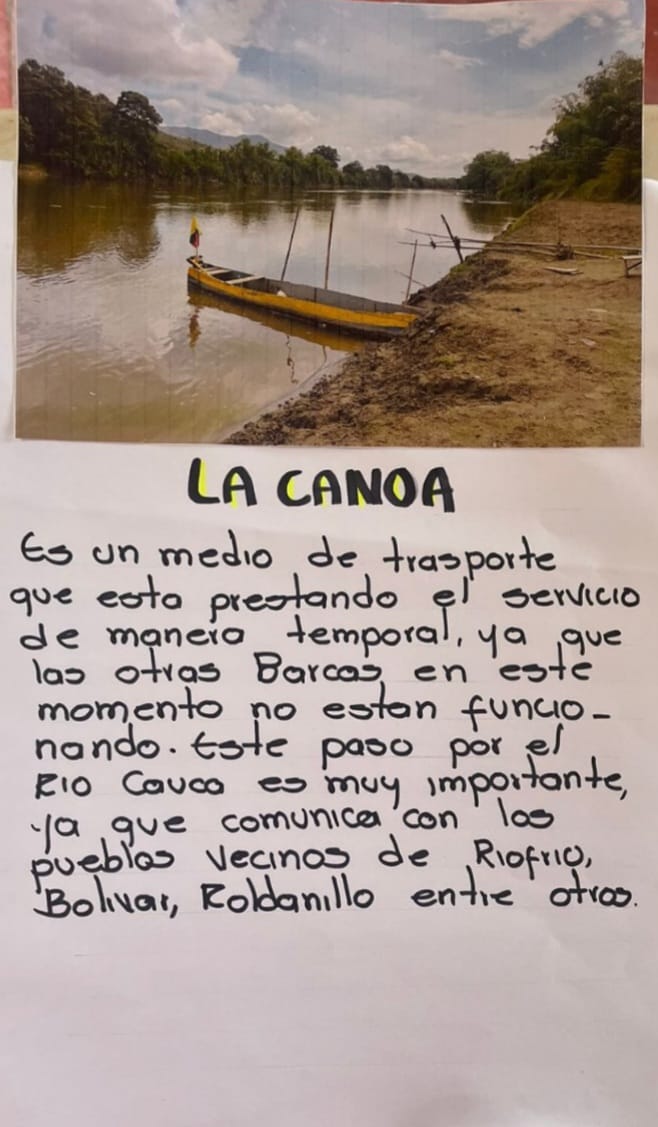 LA CANOA
Es un medio de trasporte
que esta prestando el servicio
de manera temporal, ya que
las otras Barcas en este
momento no estan funcio-
nando. Este paso por el
RIO Cauca es muy importante,
ya que comunica con los
pueblos vecinos de Riofrio,
Bolivar, Roldanillo entre otros.